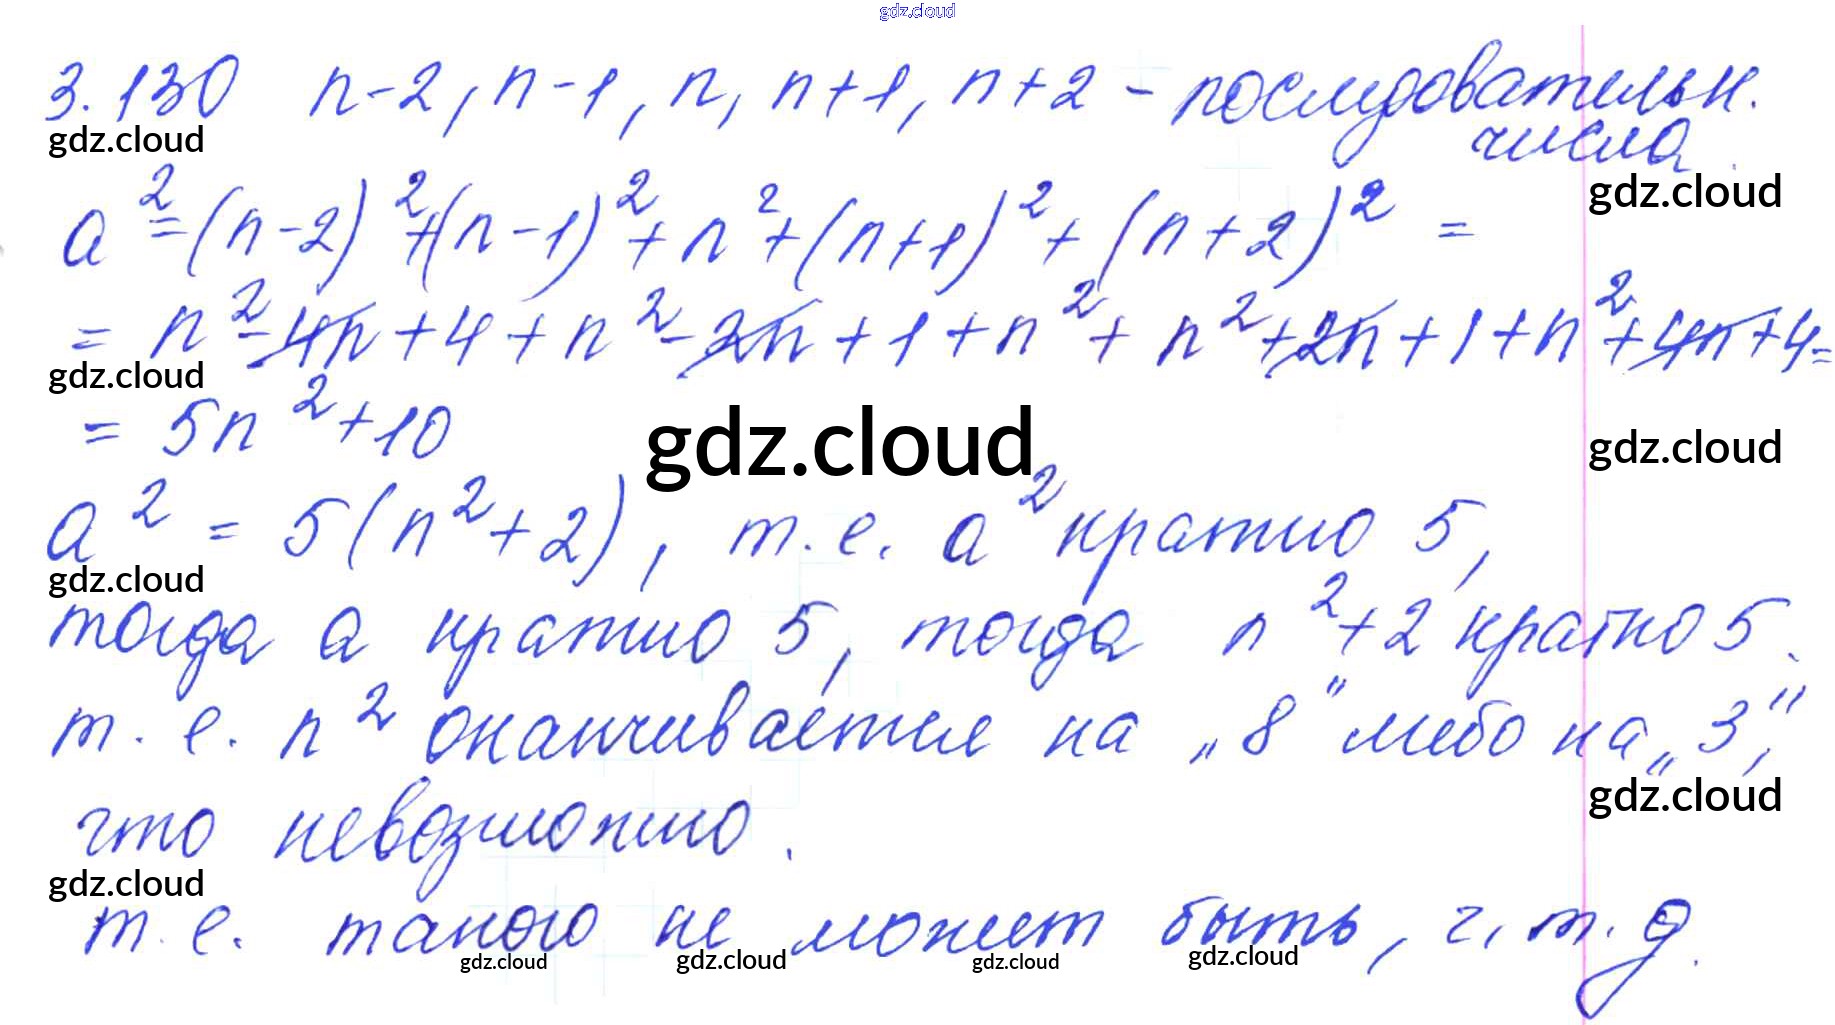 gdz.cloud
3.130 n-2, n-1, n, n+1, n+2 - последовательн.
числа
gdz.cloud
gdz.cloud
a² = (n-2)² + (n-1)² + n² + (n+1)² + (n+2)² =
= n² - 4n + 4 + n² - 2n + 1 + n² + n² + 2n + 1 + n² + 4n + 4 =
gdz.cloud
= 5n² + 10
gdz.cloud
gdz.cloud
a² = 5(n² + 2), т.е. a² кратно 5,
gdz.cloud
тогда a кратно 5, тогда n² + 2 кратно 5.
т.е. n² оканчивается на „8" либо на „3",
gdz.cloud
что невозможно.
gdz.cloud
т.е. такого не может быть, ч.т.д.
gdz.cloud gdz.cloud gdz.cloud gdz.cloud